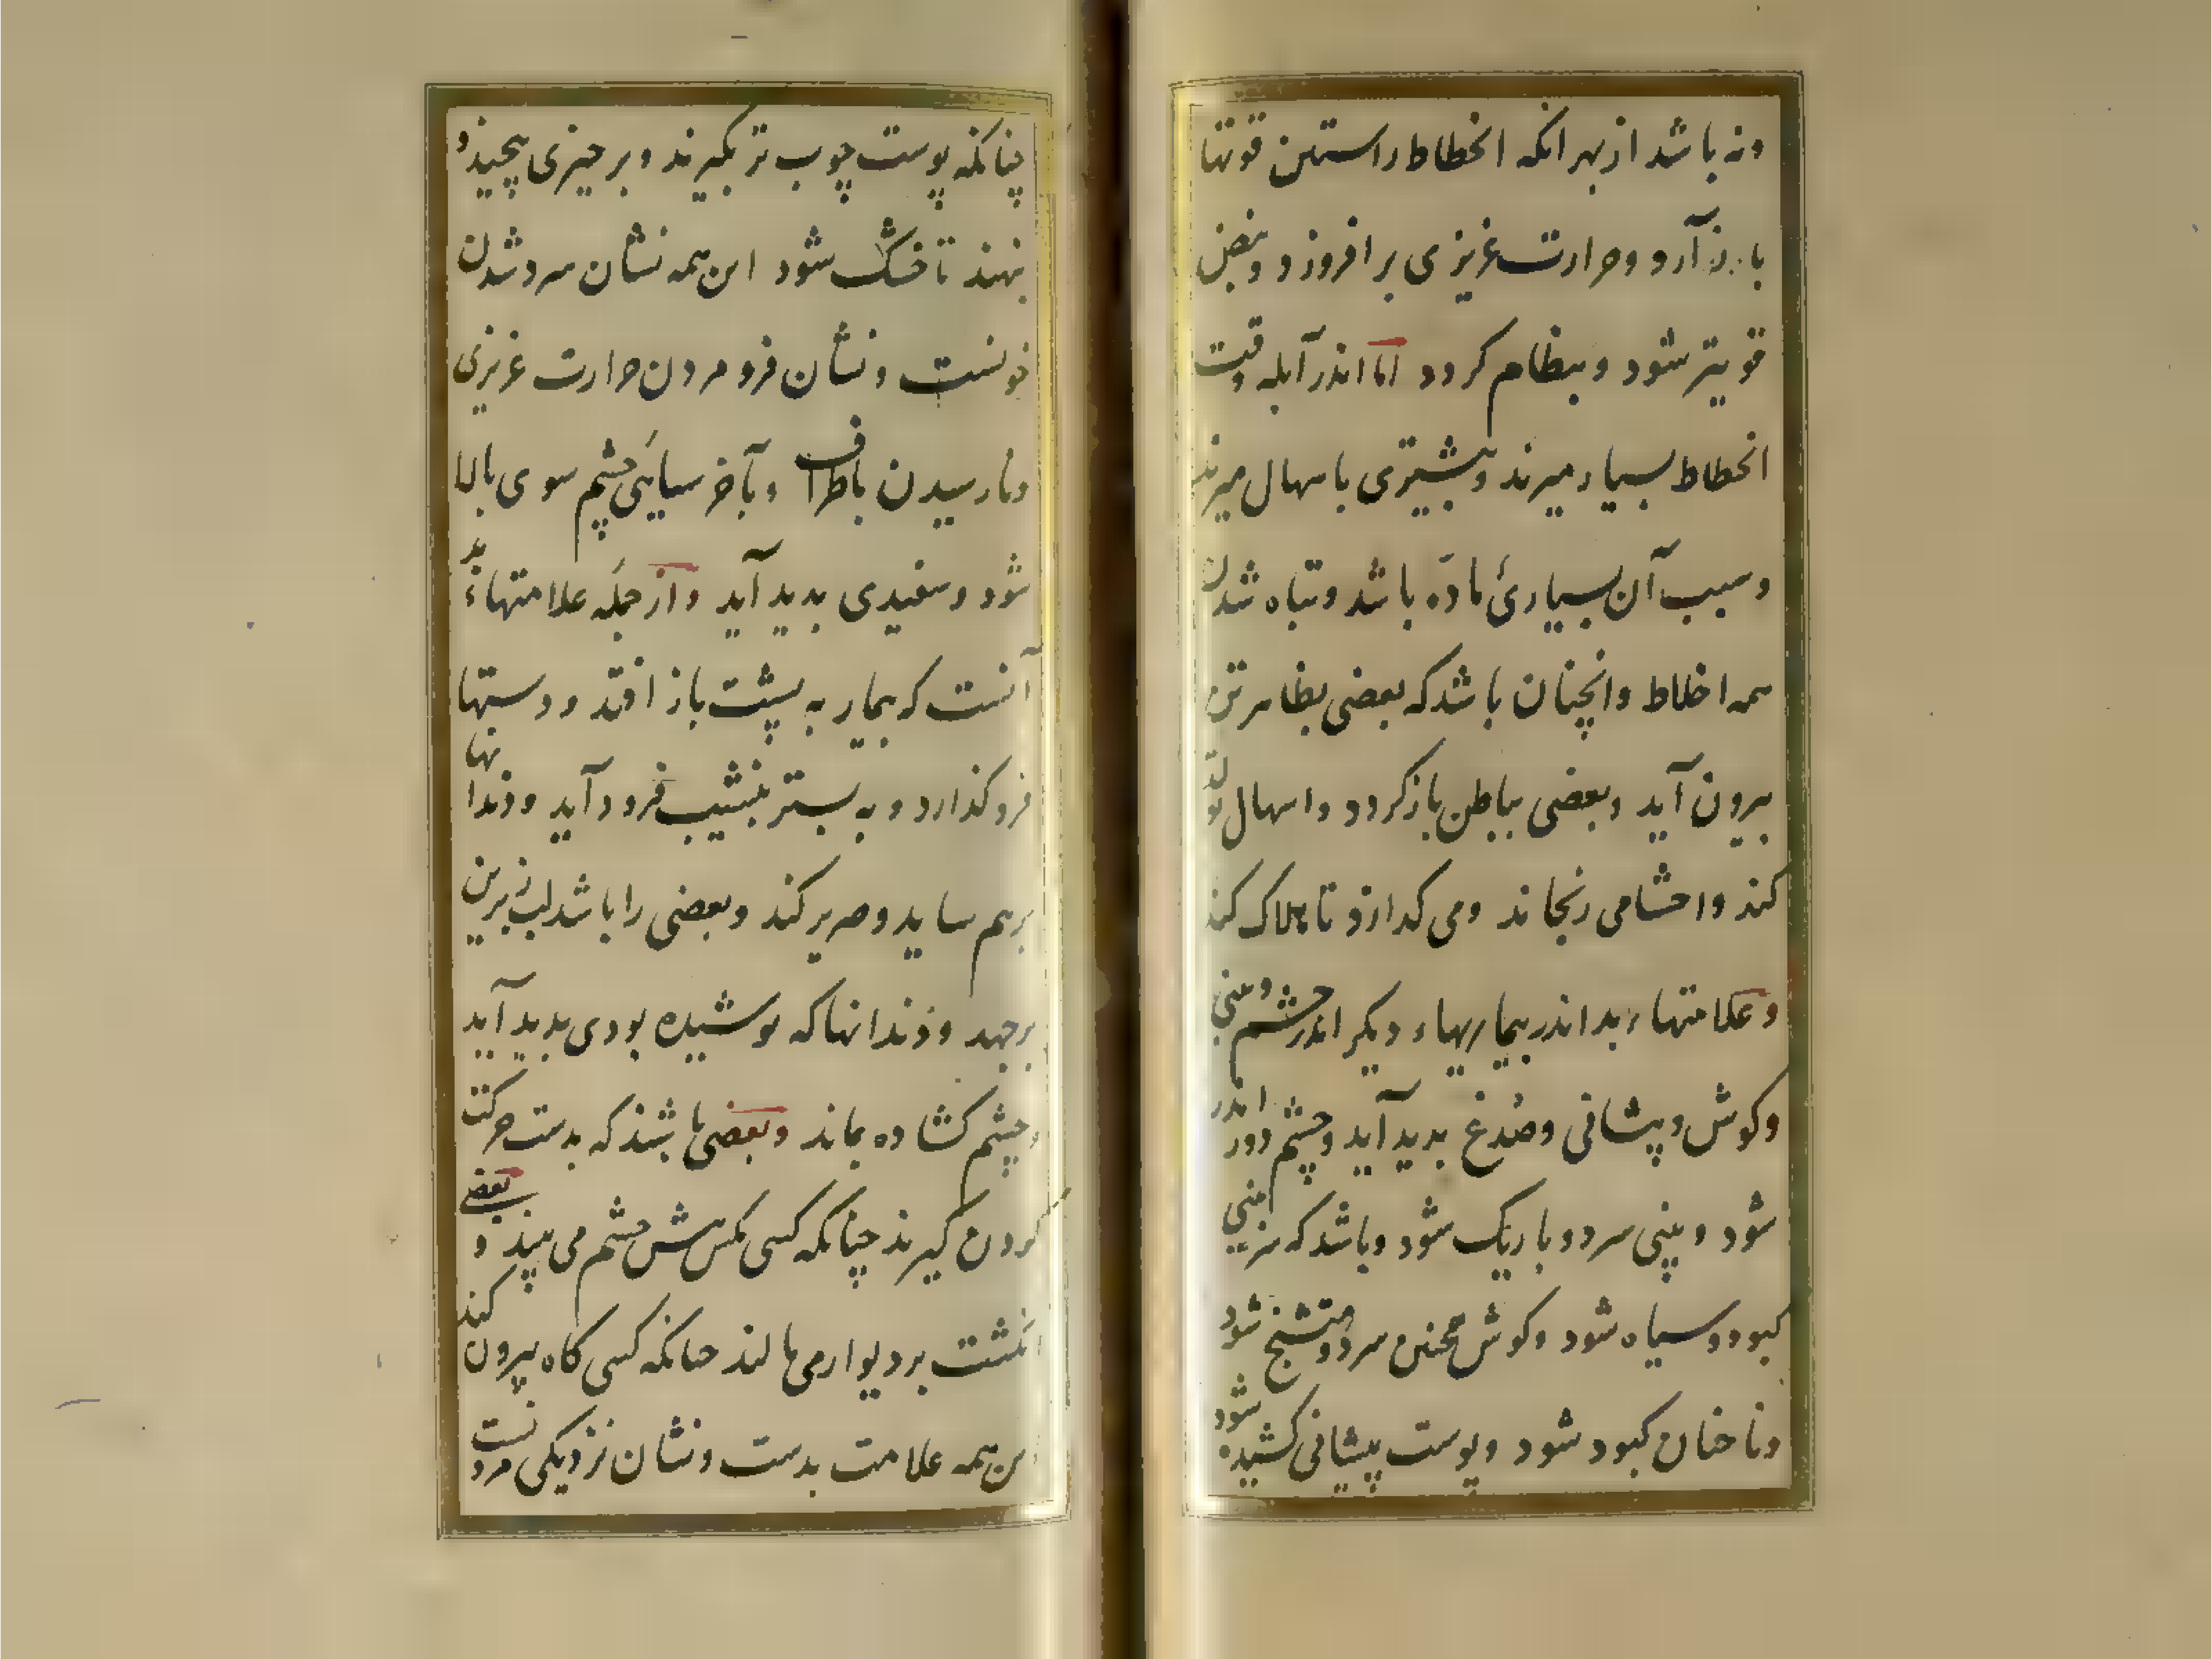 ونه باشد از بهر انکه انحطاط راستین قوتها
باز آرد وحرارت غریزی برافروزد ونبض
قوی‌تر شود وبنظام کردد اما اندر آبله وقت
انحطاط بسیار میرند وبیشتری باسهال میرند
وسبب آن بسیاریٔ مادّه باشد وتباه شدن
همه اخلاط وانچنان باشد که بعضی بظاهر تن
بیرون آید وبعضی بباطن بازکردد واسهال تولد
کند واحشا می رنجاند ومی کدازد تا هلاک کند
وعلامتهاء بد اندر بیماریهاء دیکر اندر چشم وبینی
وکوش وپیشانی وصُدغ بدید آید وچشم دور اندر
شود وبینی سرد وباریک شود وباشد که سر بینی
کبود وسیاه شود وکوش همچنین سرد ومتشنج شود
وناخنان کبود شود وپوست پیشانی کشیده شود
چنانکه پوست چوب تر بکیرند وبر چیزی پیچیند و
بنهند تا خشک شود این همه نشان سرد شدن
خونست ونشان فرو مردن حرارت غریزی
ونارسیدن باطراف وبآخر سیاهی چشم سوی بالا
شود وسفیدی بدید آید واز جمله علامتهاء بد
آنست که بیمار به پشت باز افتد ودستها
فرو کذارد وبه بستر بنشیب فرود آید ودندانها
برهم ساید وصریر کند وبعضی را باشد لب زیرین
برجهد ودندانها که پوشیده بودی بدید آید
وچشم کشاده بماند وبعضی باشند که بدست حرکت
کردن کیرند چنانکه کسی مکس پیش چشم می بیند وبعضی
انکشت بر دیوار می مالند چنانکه کسی کاه بیرون کند
این همه علامت بدست ونشان نزدیکی مردنست